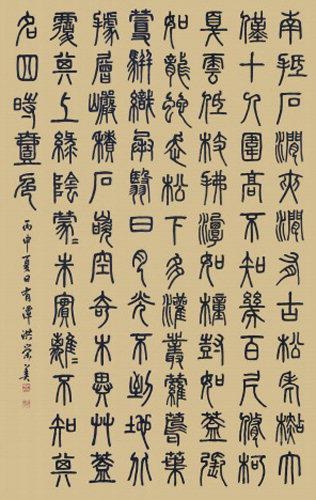 南抵石澗夾澗有古松老檆大
僅十人圍高不知幾百尺修柯
戛雲低枝拂潭如幢尌如蓋張
如龍蛇走松下多灌叢蘿蔦葉
蔓駢織承翳日月光不到地
據層巖積石嵌空奇木異艸蓋
覆其上綠陰蒙〻朱實離〻不知其
名四時壹色
丙申夏日 潭洪榮美